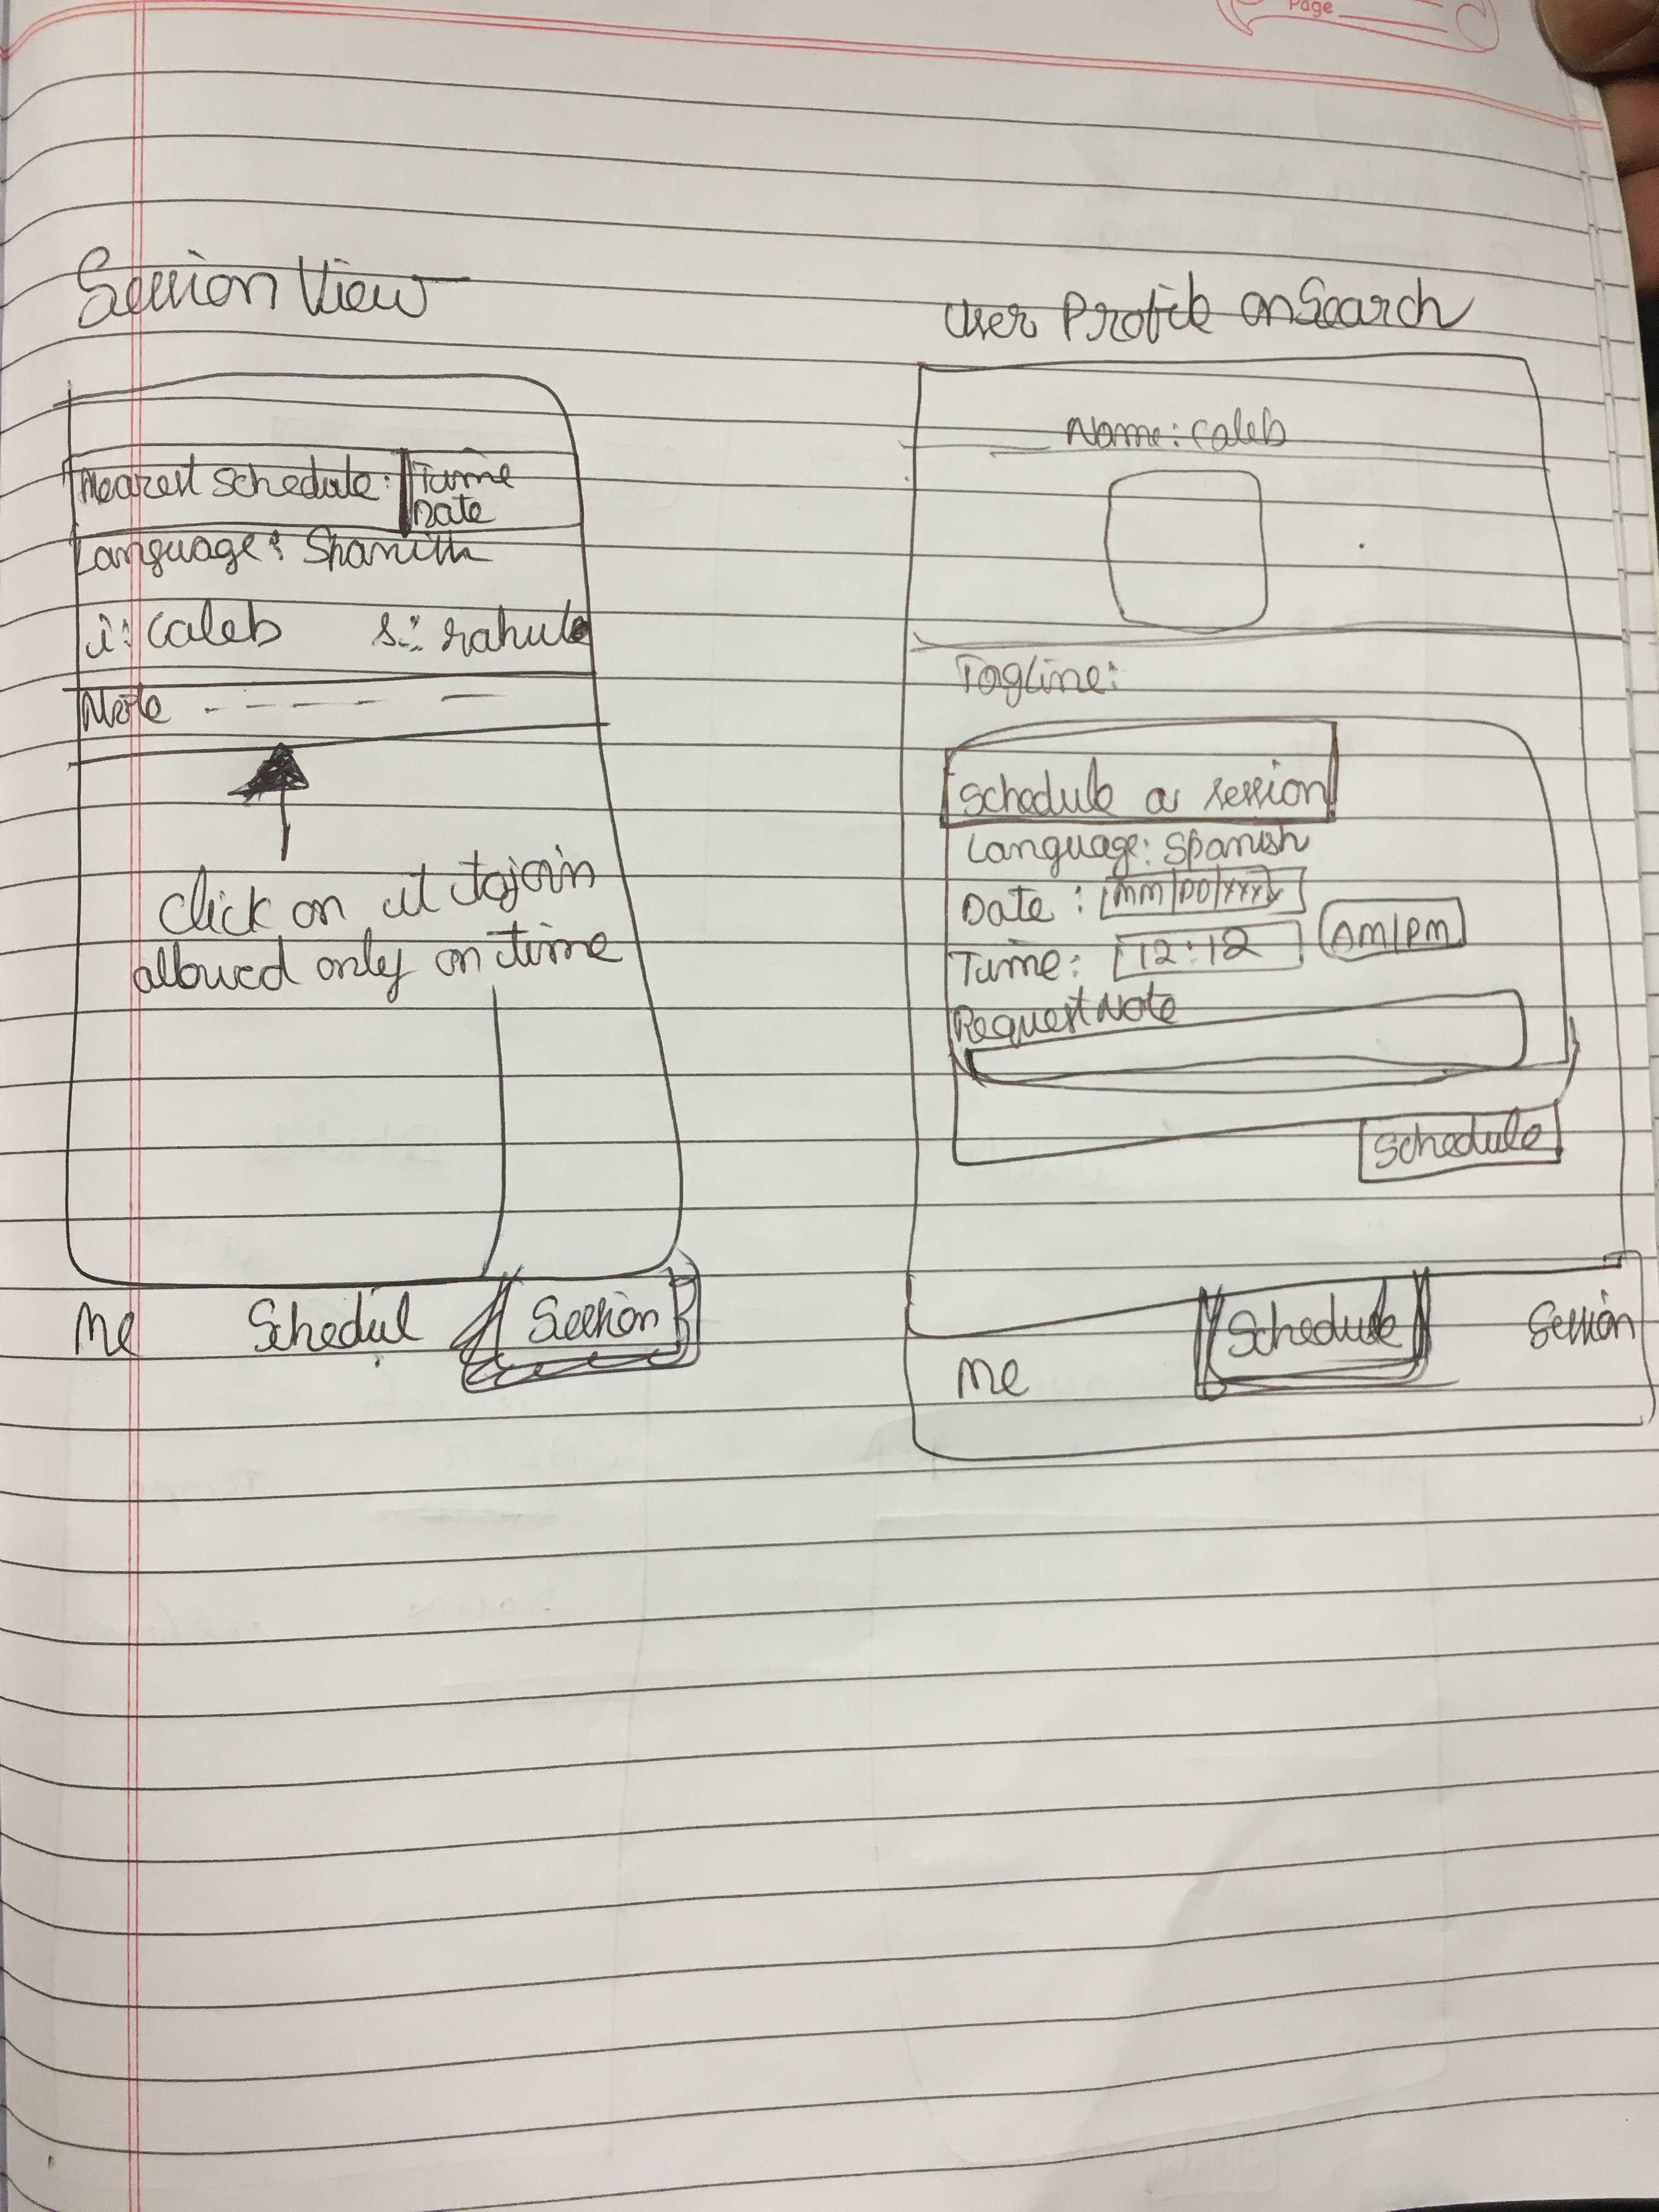 Page
Session View
Nearest schedule: Time
Date
Language: Spanish
i: caleb s: rahul
Note
click on it to join
allowed only on time
Me Schedul Session
User Profile on Search
Name: caleb
Tagline:
Schedule a session
Language: Spanish
Date: MM/DD/YYYY
Time: 12:12 AM/PM
Request Note
Schedule
Me Schedule Session